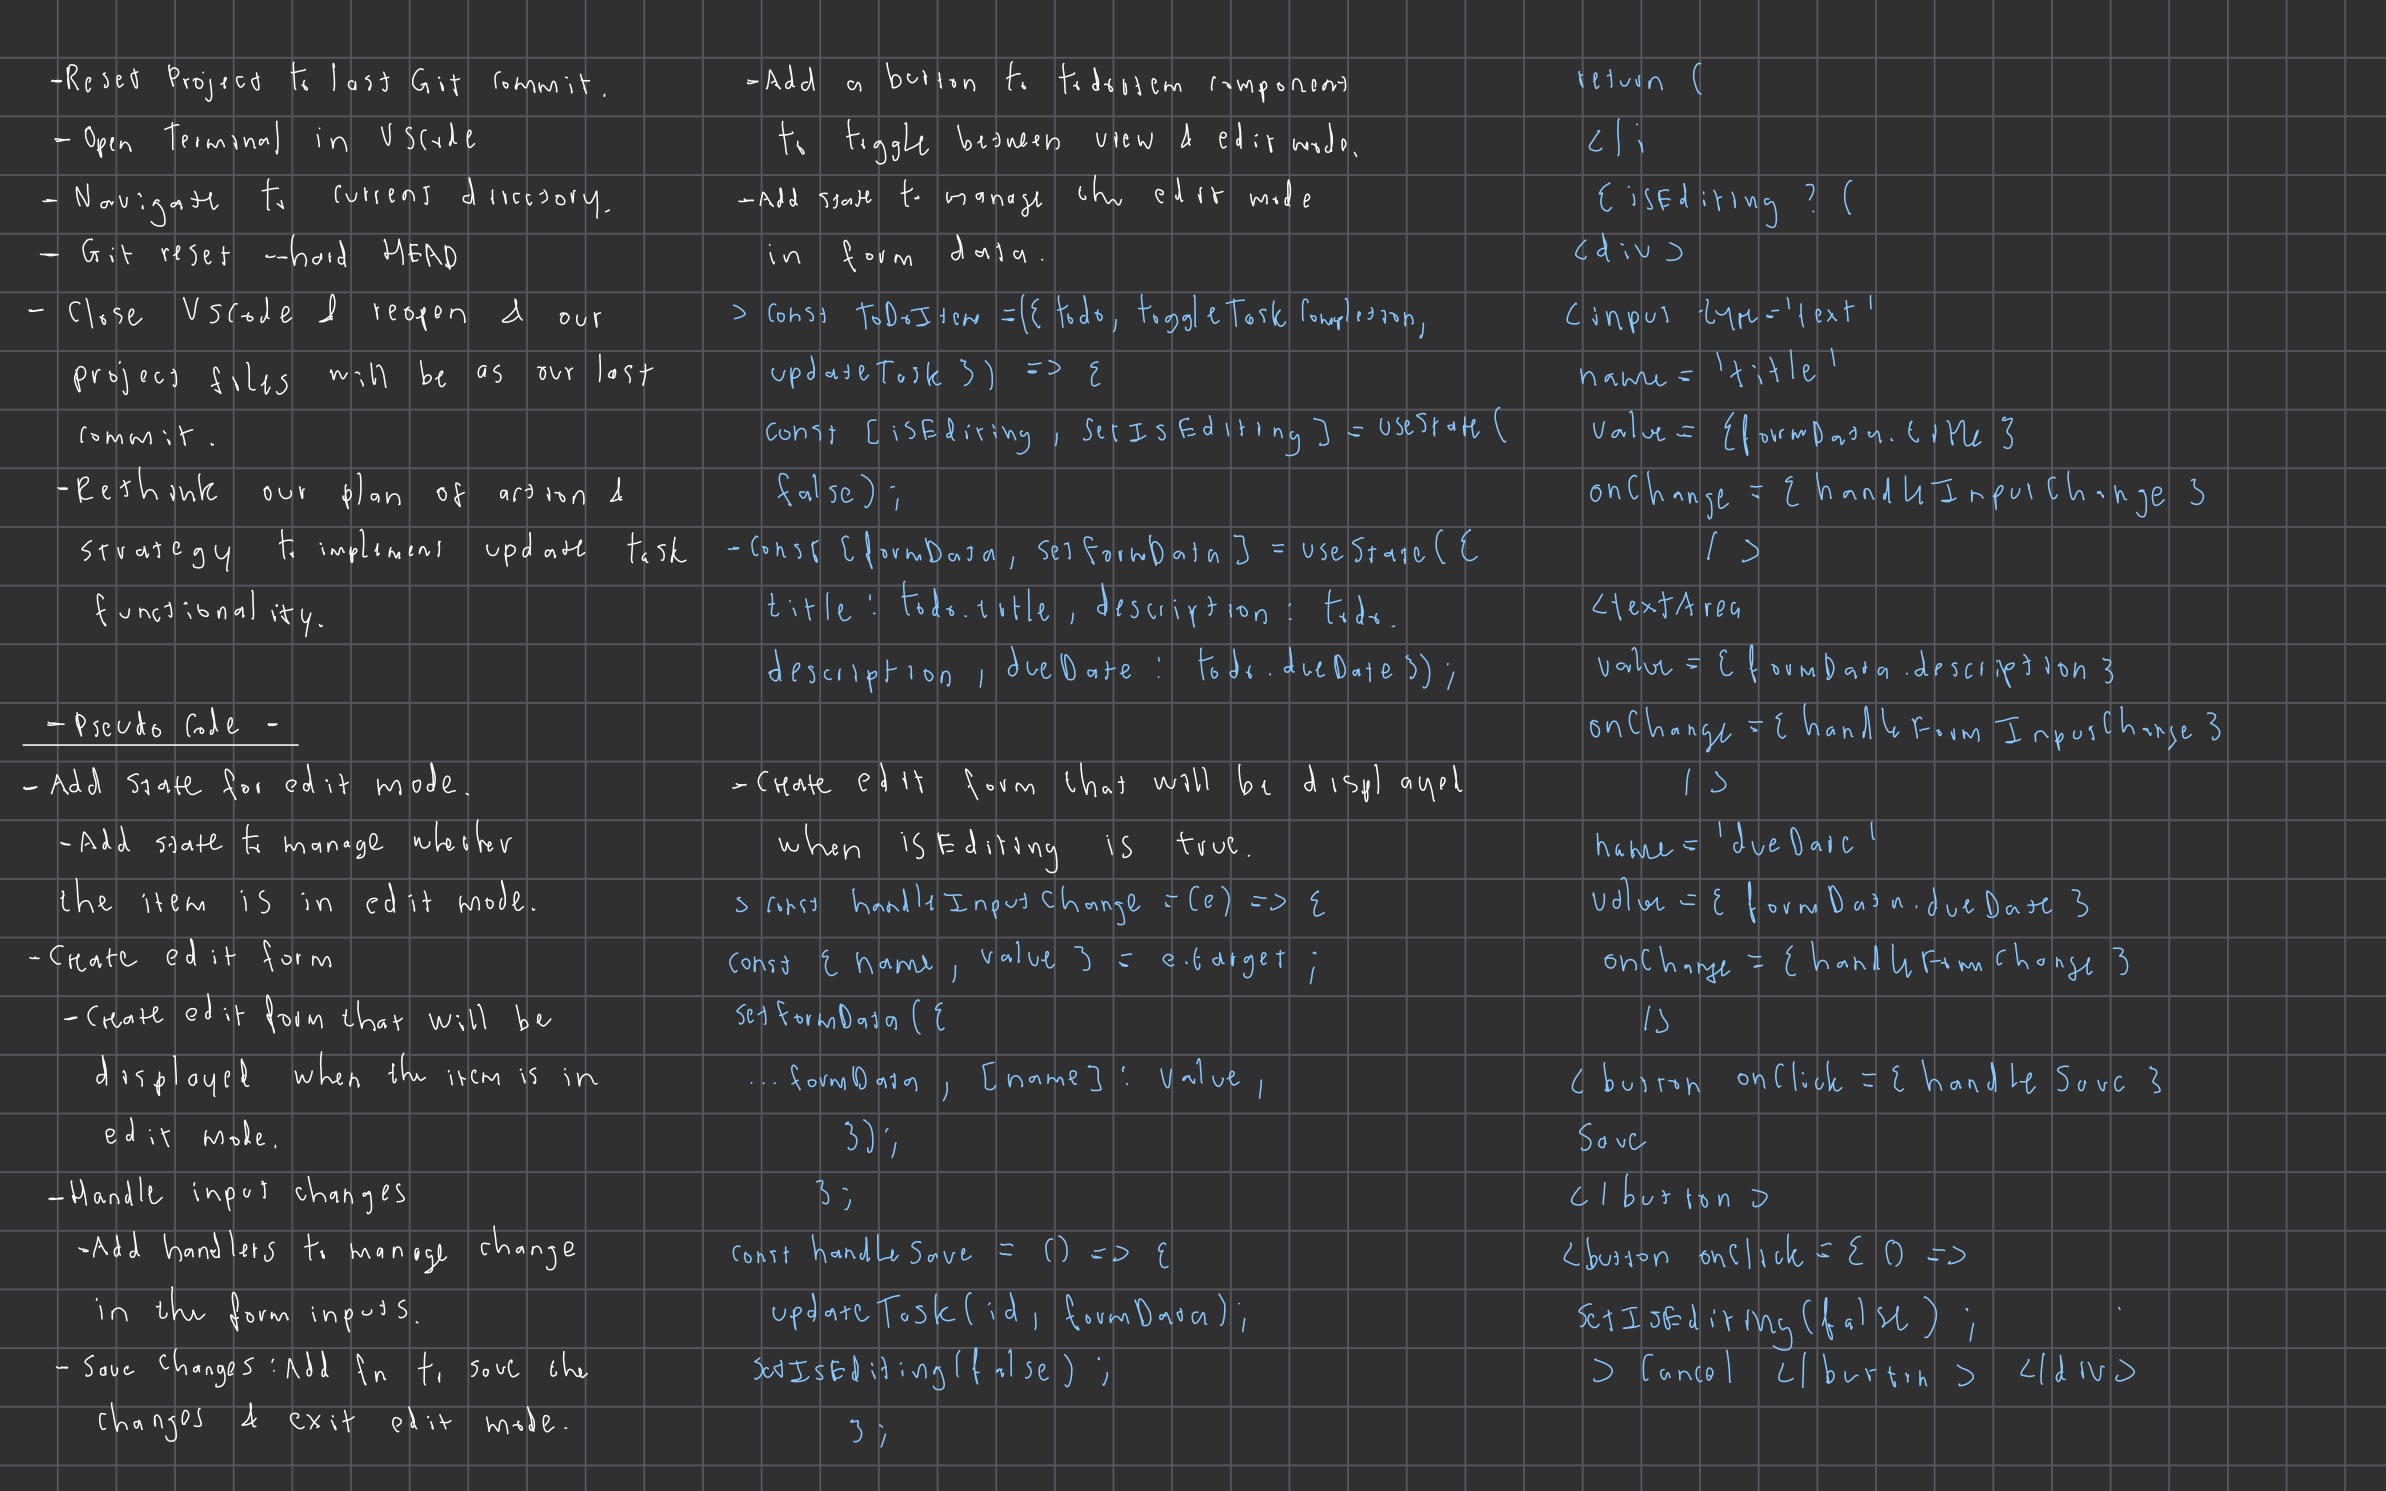 -Reset Project to last Git commit.
- Open Terminal in VScode
- Navigate to current directory.
- Git reset --hard HEAD
- Close VScode & reopen & our
project files will be as our last
commit.
-Rethink our plan of action &
strategy to implement update task
functionality.
- Pseudo Code -
- Add state for edit mode.
-Add state to manage whether
the item is in edit mode.
-Create edit form
-Create edit form that will be
displayed when the item is in
edit mode.
-Handle input changes
-Add handlers to manage change
in the form inputs.
- Save changes: Add fn to save the
changes & exit edit mode.
-Add a button to todoitem component
to toggle between view & edit mode.
-Add state to manage the edit mode
in form data.
> const ToDoItem =({ todo, toggleTaskCompletion,
updateTask }) => {
const [isEditing, setIsEditing] = useState(
false);
-const [formData, setFormData] = useState({
title: todo.title, description: todo.
description, dueDate: todo.dueDate});
-Create edit form that will be displayed
when isEditing is true.
> const handleInputChange =(e) => {
const { name, value } = e.target;
setFormData({
...formData, [name]: value,
});
};
const handleSave = () => {
updateTask(id, formData);
setIsEditing(false);
};
return (
<li
{ isEditing ? (
<div>
<input type='text'
name= 'title'
value= {formData.title}
onChange = { handleInputChange }
/>
<textArea
value={ formData.description }
onChange ={ handleFormInputChange }
/>
name= 'dueDate'
value={ formData.dueDate }
onChange = { handleFormChange }
/>
< button onClick ={ handleSave }
Save
</button>
<button onClick ={ () =>
setIsEditing(false) ;
> Cancel </button> </div>